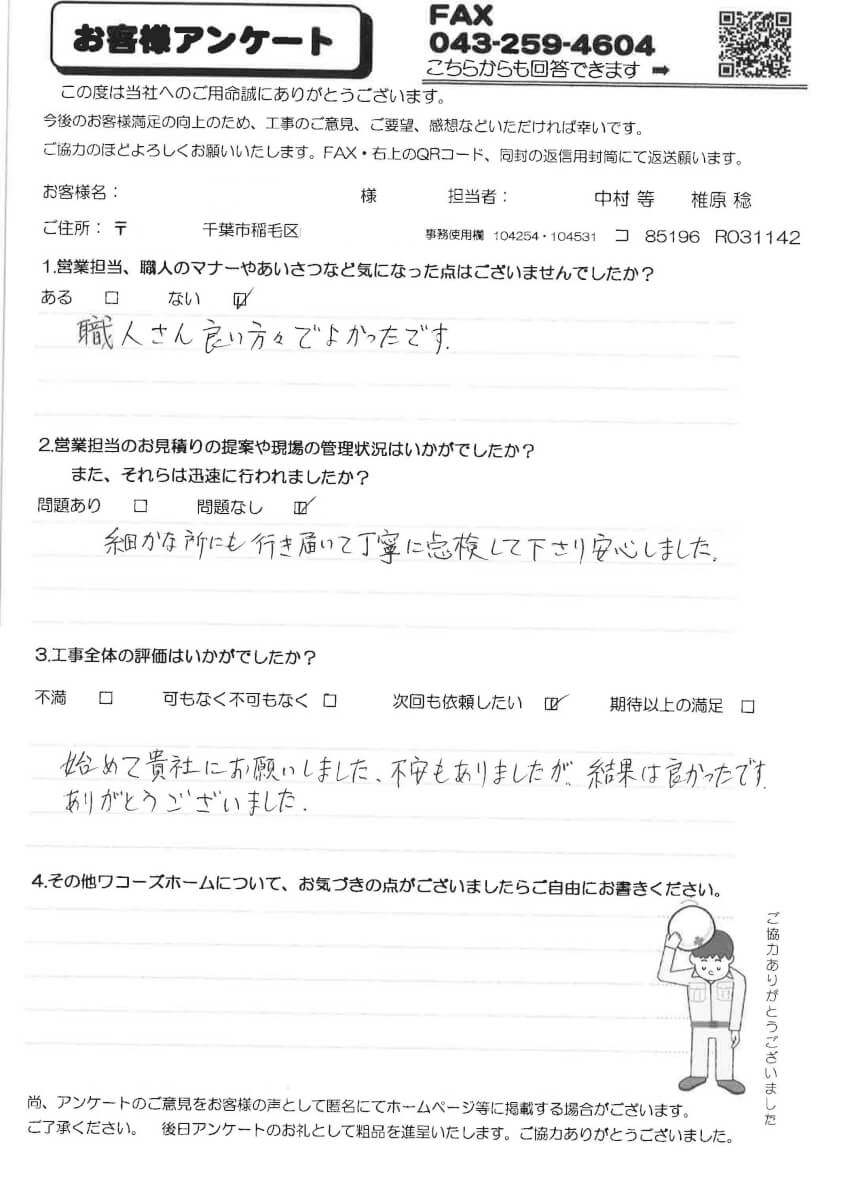 お客様アンケート
FAX
043-259-4604
こちらからも回答できます ➡
この度は当社へのご用命誠にありがとうございます。
今後のお客様満足の向上のため、工事のご意見、ご要望、感想などいただければ幸いです。
ご協力のほどよろしくお願いいたします。FAX・右上のQRコード、同封の返信用封筒にて返送願います。
お客様名： 様 担当者： 中村 等 椎原 稔
ご住所：〒 千葉市稲毛区 事務使用欄 104254・104531 コ 85196 R031142
1.営業担当、職人のマナーやあいさつなど気になった点はございませんでしたか？
ある □ ない ☑
職人さん良い方々でよかったです.
2.営業担当のお見積りの提案や現場の管理状況はいかがでしたか？
また、それらは迅速に行われましたか？
問題あり □ 問題なし ☑
細かな所にも行き届いて丁寧に点検して下さり安心しました.
3.工事全体の評価はいかがでしたか？
不満 □ 可もなく不可もなく □ 次回も依頼したい ☑ 期待以上の満足 □
始めて貴社にお願いしました、不安もありましたが、結果は良かったです.
ありがとうございました.
4.その他ワコーズホームについて、お気づきの点がございましたらご自由にお書きください。
ご協力ありがとうございました
尚、アンケートのご意見をお客様の声として匿名にてホームページ等に掲載する場合がございます。
ご了承ください。 後日アンケートのお礼として粗品を進呈いたします。ご協力ありがとうございました。